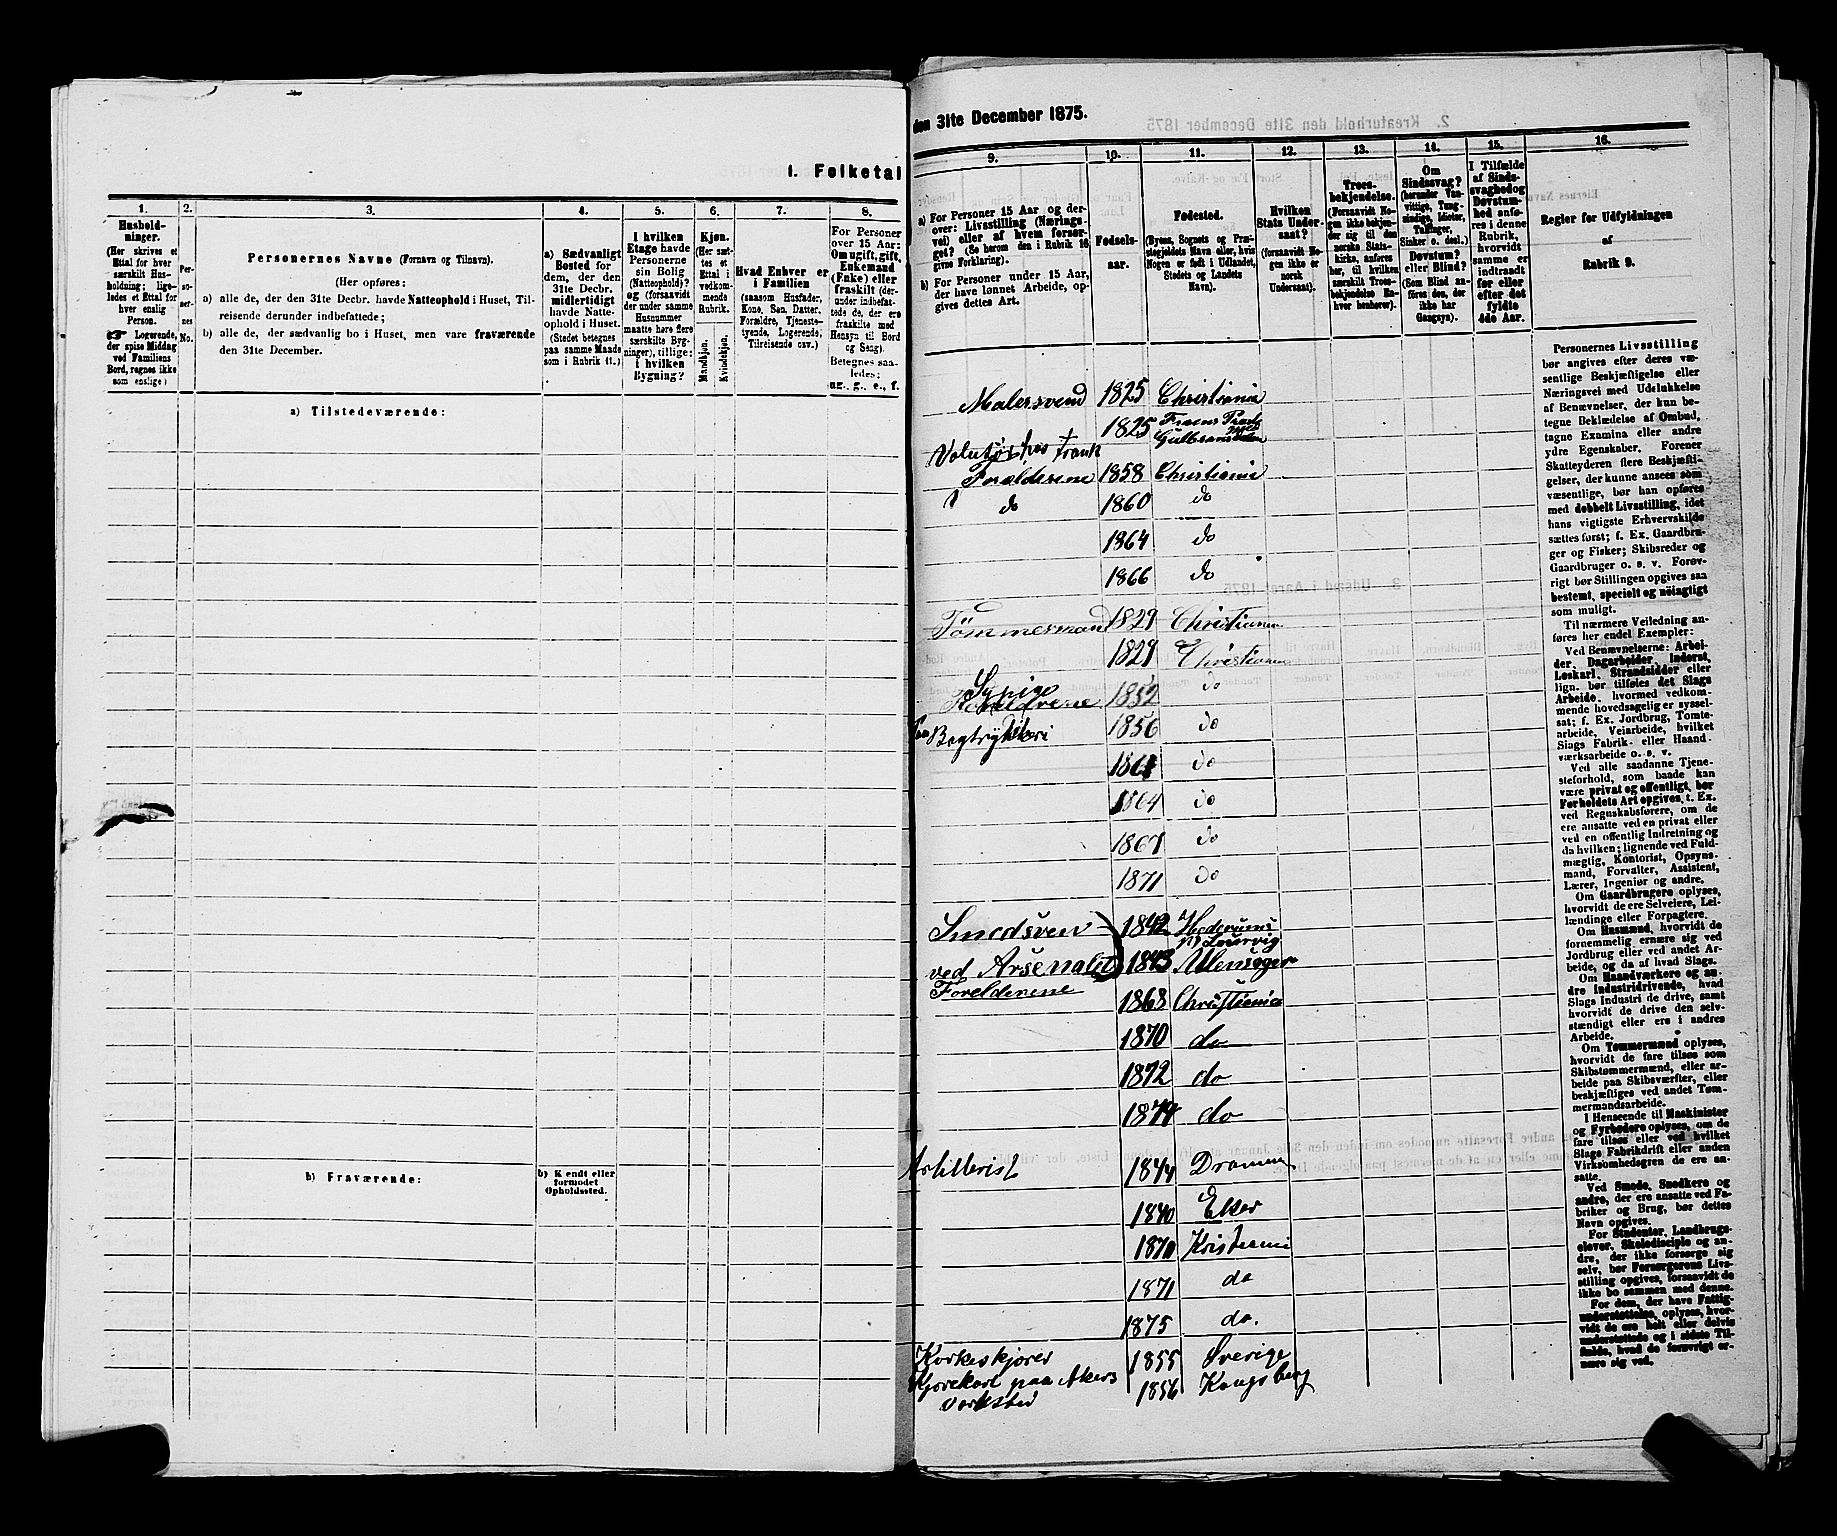 1. Folketal
1.
2.
3.
4.
5.
6.
7.
8.
Hushold-
ninger.
(Her skrives et
Ettal for hver
særskilt Hus-
holdning; lige-
ledes et Ettal for
hver enslig
Person.
Logerende,
der spise Middag
ved Familiens
Bord, regnes ikke
som enslige.)
Per-
so-
ner-
nes
No.
Personernes Navne (Fornavn og Tilnavn).
(Her opføres:
a) alle de, der den 31te Decbr. havde Natteophold i Huset, Til-
reisende derunder indbefattede;
b) alle de, der sædvanlig bo i Huset, men vare fraværende
den 31te December.
a) Sædvanligt
Bosted for
dem, der den
31te Decbr.
midlertidigt
havde Natte-
ophold i Huset.
(Stedet betegnes
paa samme Maade
som i Rubrik 11.)
I hvilken
Etage havde
Personerne
sin Bolig
(Natteophold)?
og (forsaavidt
der under samme
Husnummer
maatte høre flere
særskilte Byg-
ninger), tillige:
i hvilken
Bygning?
Kjøn.
(Her sæt-
tes et
Ettal i
vedkom-
mende
Rubrik.
Mandkjøn.
Kvindekjøn.
Hvad Enhver er
i Familien
(saasom Husfader,
Kone, Søn, Datter,
Forældre, Tjeneste-
tyende, Logerende,
Tilreisende osv.)
For Personer
over 15 Aar:
Om ugift, gift,
Enkemand
(Enke) eller
fraskilt (der-
under indbefat-
tede de, der ere
fraskilte med
Hensyn til Bord
og Seng).
Betegnes saa-
ledes;
ug., g., e., f.
a) Tilstedeværende:
b) Fraværende:
b) Kjendt eller
formodet
Opholdssted.
den 31te December 1875.
9.
10.
11.
12.
13.
14.
15.
16.
a) For Personer 15 Aar og der-
over: Livsstilling (Nærings-
vei) eller af hvem forsør-
get (Se herom den i Rubrik 16
givne Forklaring).
b) For Personer under 15 Aar,
der have lønnet Arbeide, op-
gives dettes Art.
Fødsels-
aar.
Fødested.
(Byens, Sognets og Præ-
stegjeldets Navn eller, hvis
Nogen er født i Udlandet,
Stedets og Landets
Navn).
Hvilken
Stats Under-
saat?
(forsaavidt No-
gen ikke er
norsk
Undersaat).
Troes-
bekjendelse.
(Forsaavidt No-
gen ikke bekjen-
der sig til den
norske Stats-
kirke, anføres
her, til hvilken
særskilt Troes-
bekjendelse En-
hver henhører).
Om
Sindssvag?
(herunder Van-
vittige, Tung-
sindige, Idioter,
Tullinger,
Sinker o. desl.)
Døvstum?
eller Blind?
(Som Blind an-
føres den, der
ikke har
Gangsyn).
I Tilfælde
af Sinds-
svaghed og
Døvstum-
hed anfø-
res i denne
Rubrik,
hvorvidt
samme er
indtraadt
før eller
efter det
fyldte
4de Aar.
Regler for Udfyldningen
af
Rubrik 9.
Malersvend 1825 Christiania
1825
Forælderene 1858 Christiania
do 1860 do
1864 do
1866 do
Tømmermand 1829 Christiania
1829 Christiania
Sypige 1852 do
Bogtrykkeri 1856 do
1861 do
1864 do
1867 do
1871 do
Smedsven 1842
ved Arsenalet 1843 Ulensager
Forelderene
1868 Christiania
1870 do
1872 do
1874 do
Artillerist 1844 Drammen
1840 Eker
1870 Kristiania
1871 do
1875 do.
1855 Sverige
Kjørekarl paa Akers 1856 Kongsberg
Værksted
Personernes Livsstilling
bør angives efter deres væ-
sentlige Beskjæftigelse eller
Næringsvei med Udelukkelse
af Benævnelser, der kun be-
tegne Beklædelse af Ombud,
tagne Examina eller andre
ydre Egenskaber. Forener
Skatteyderen flere Beskjæfti-
gelser, der kunne ansees som
væsentlige, bør han opføres
med dobbelt Livsstilling, idet
hans vigtigste Erhvervskilde
sættes først; f. Ex. Gaardbru-
ger og Fisker; Skibsreder og
Gaardbruger o. s. v. Forøv-
rigt bør Stillingen opgives saa
bestemt, specielt og nøiagtigt
som muligt.
Til nærmere Veiledning an-
føres her endel Exempler:
Ved Benævnelserne: Arbei-
der, Dagarbeider, Inderst,
Løskarl, Strandsidder eller
lign. bør tilføies det Slags
Arbeide, hvormed vedkom-
mende hovedsagelig er syssel-
sat; f. Ex. Jordbrug, Tomte-
arbeide, Veiarbeide, hvilket
Slags Fabrik- eller Haand-
værksarbeide o. s. v.
Ved alle saadanne Tjene-
steforhold, som baade kan
være privat og offentligt, bør
Forholdets Art opgives, t. Ex.
ved Regnskabsførere, om de
ere ansatte ved en privat eller
ved en offentlig Indretning og
da hvilken; lignende ved Fuld-
mægtig, Kontorist, Opsyns-
mand, Forvalter, Assistent,
Lærer, Ingeniør og andre.
Om Gaardbrugere oplyses,
hvorvidt de ere Selveiere, Lei-
lændinge eller Forpagtere.
Om Husmænd, hvorvidt de
fornemmelig ernære sig ved
Jordbrug eller ved andet Ar-
beide, og da af hvad Slags.
Om Haandværkere og an-
dre Industridrivende, hvad
Slags Industri de drive, samt
hvorvidt de drive den selv-
stændigt eller ere i andres
Arbeide.
Om Tømmermænd oplyses,
hvorvidt de fare tilsøs som
Skibstømmermænd, eller ar-
beide paa Skibsværfter, eller
beskjæftiges ved andet Tøm-
mermandsarbeide.
I Henseende til Maskinister
og Fyrbødere oplyses, om de
fare tilsøs eller ved hvilket
Slags Fabrikdrift eller anden
Virksomhedsgren de ere an-
satte.
Ved Smede, Snedkere og
andre, der ere ansatte ved Fa-
briker og Brug, bør dettes
Navn opgives.
For Studenter, Landbrugs-
elever, Skoledisciple og an-
dre, der ikke forsørge sig
selv, bør Forsørgerens Livs-
stilling opgives, forsaavidt de
ikke bo sammen med denne.
For dem, der have Fattig-
understøttelse, oplyses, hvor-
vidt de ere helt eller delvis
understøttede og i sidste Til-
fælde, hvad de forøvrigt er-
nære sig ved.